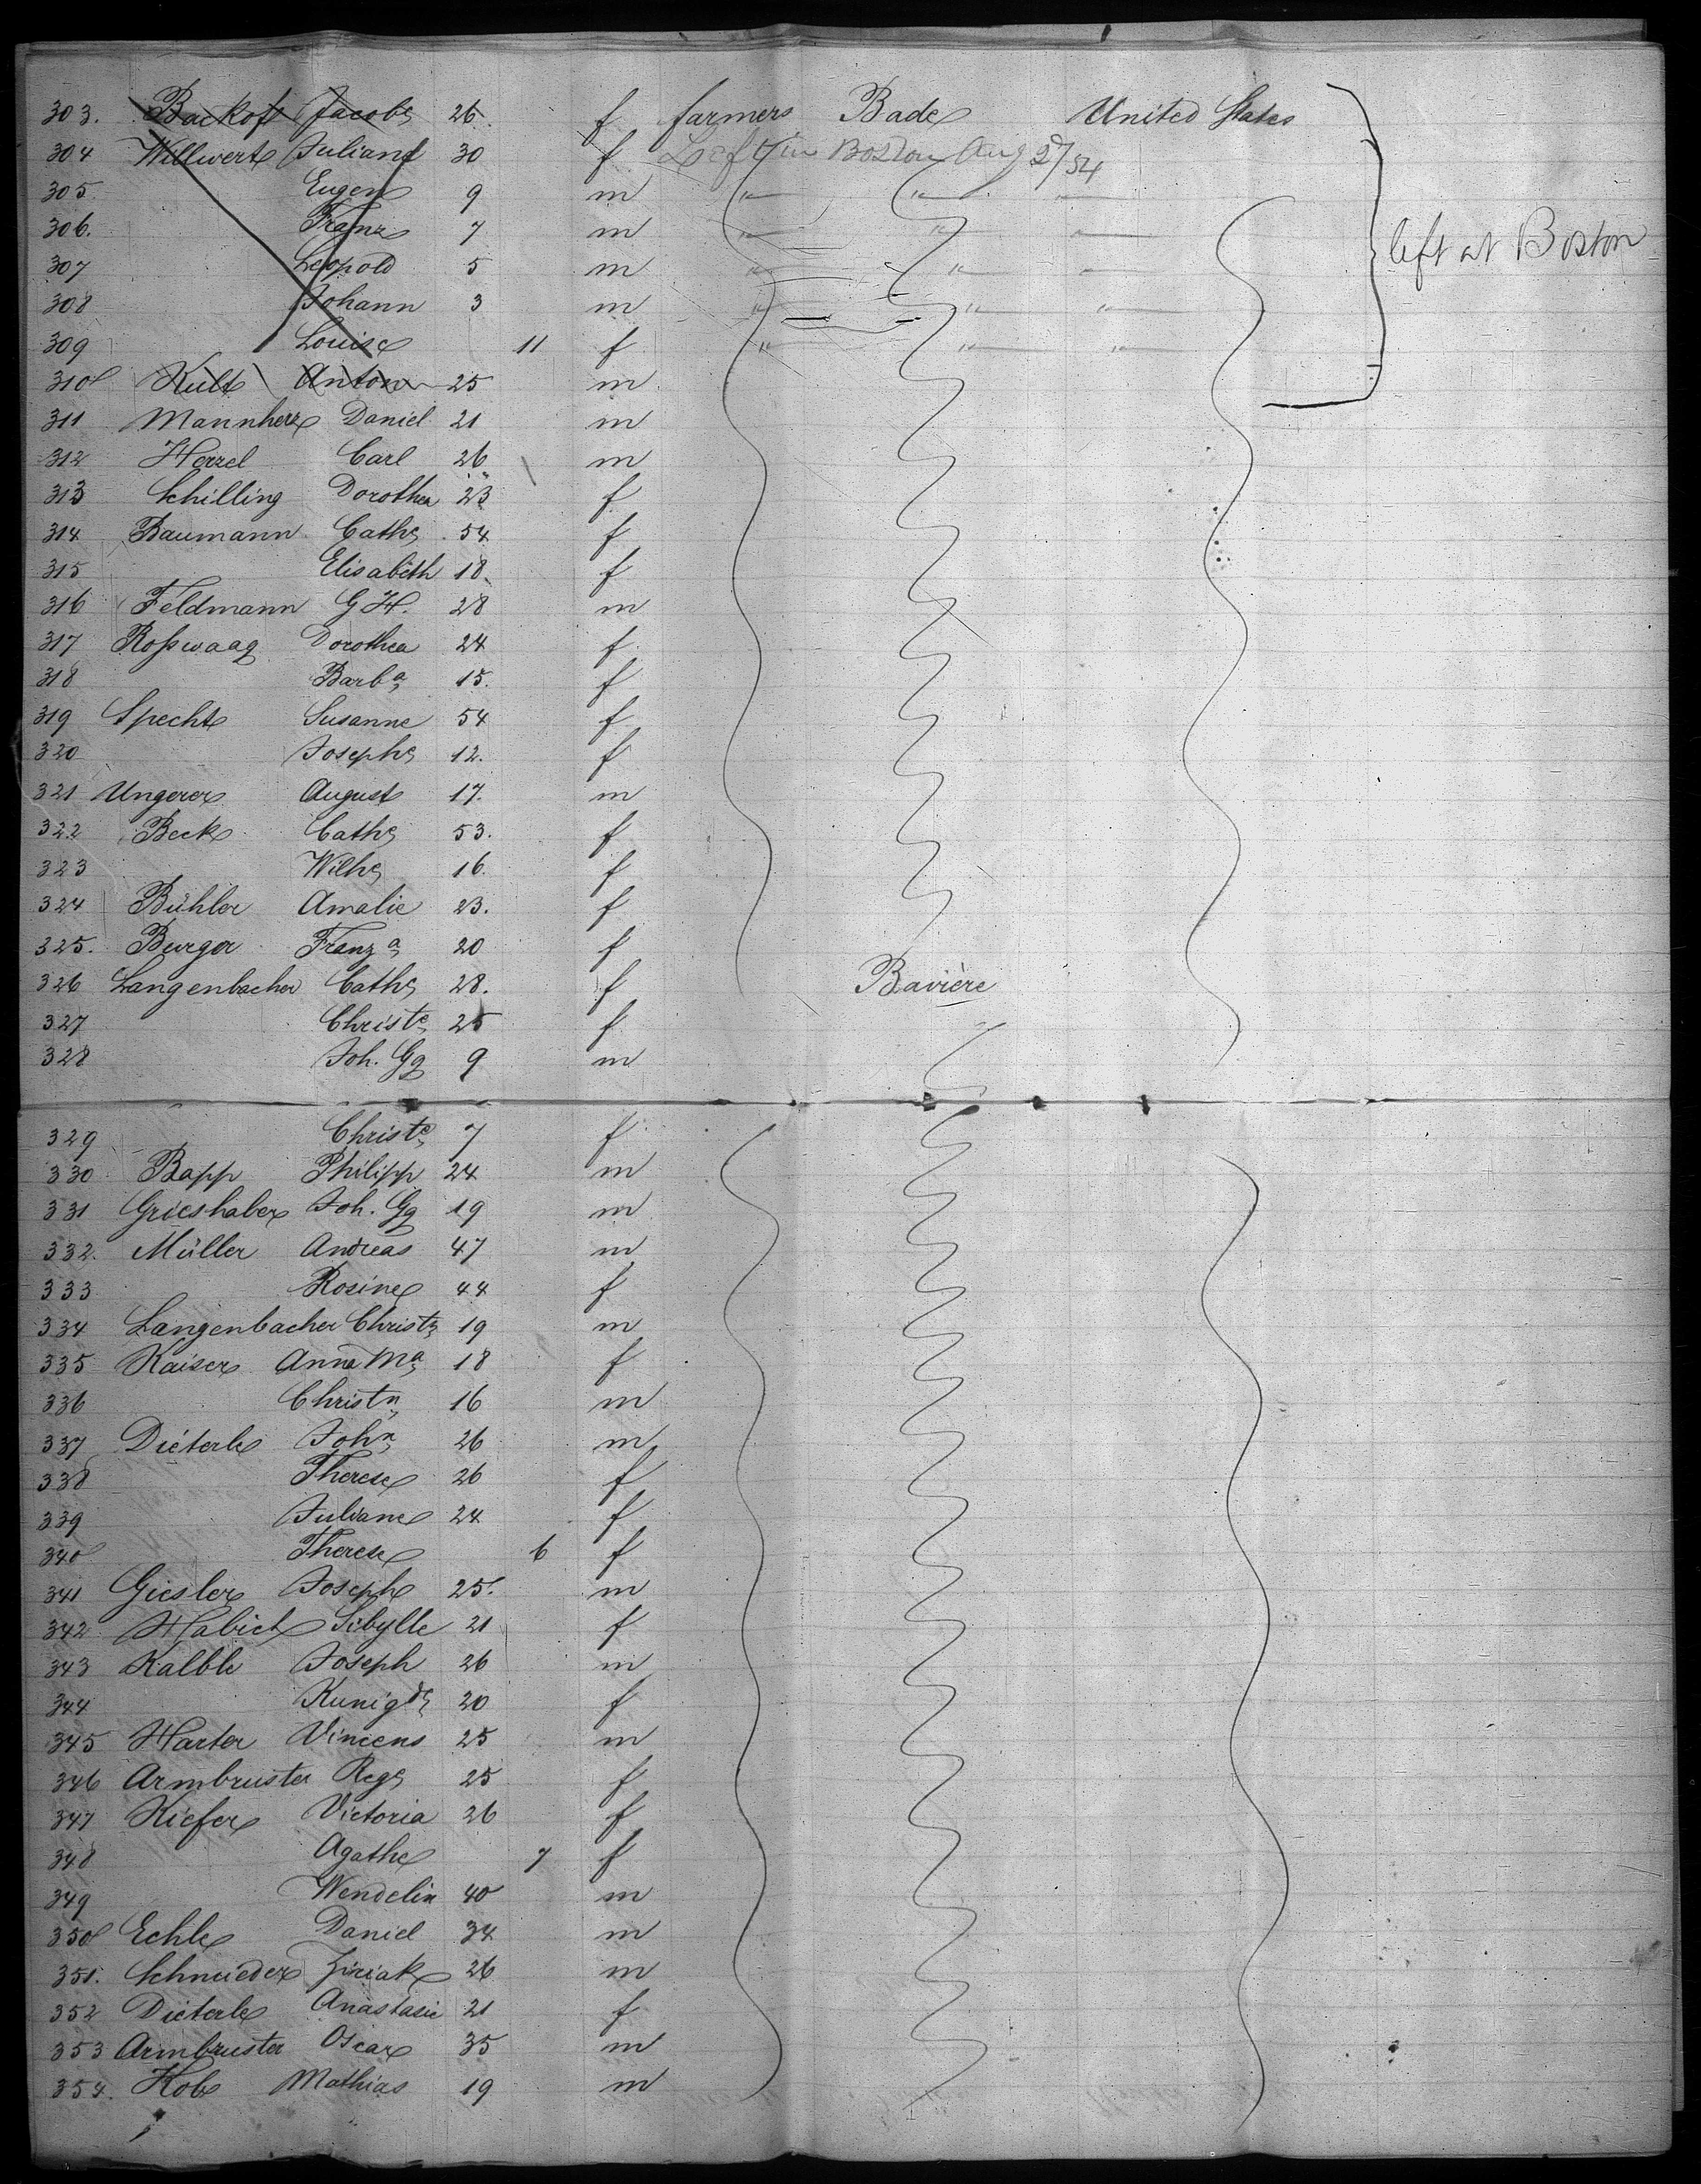 303. Backofe Jacobe 26. f farmers Bade United States
304 Willwerts Juliane 30 f Left in Boston Aug 27/54
305 Eugen 9 m " " "
306. Franz 7 m " " "
307 Leopold 5 m " " "
left at Boston
308 Johann 3 m " " "
309 Louise 11 f " " "
310 Kult Anton 25 m
311 Mannherz Daniel 21 m
312 Herzel Carl 26 m
313 Schilling Dorothea 23 f
314 Baumann Cathe 54 f
315 Elisabeth 18 f
316 Feldmann G H. 28 m
317 Roßwaag Dorothea 24 f
318 Barba 15. f
319 Specht Susanne 54 f
320 Josephe 12. f
321 Ungerer August 17. m
322 Beck Cathe 53. f
323 Wilhe 16. f
324 Bühler Amalie 23. f
325. Burger Franza 20 f
326 Langenbacher Cathe 28. f Bavière
327 Christe 25 f
328 Joh. Gg 9 m
329 Christe 7 f
330 Bapp Philipp 24 m
331 Grieshaber Joh. Gg 19 m
332. Müller Andreas 47 m
333 Rosine 44 f
334 Langenbacher Christn 19 m
335 Kaiser Anna Ma 18 f
336 Christn 16 m
337 Dieterle John 26 m
338 Therese 26 f
339 Juliane 24 f
340 Therese 6 f
341 Giesler Joseph 25. m
342 Habich Sibylle 21 f
343 Kalble Joseph 26 m
344 Kunigde 20 f
345 Harter Vincens 25 m
346 Armbruster Rege 25 f
347 Kiefer Victoria 26 f
348 Agathe 7 f
349 Wendelin 40 m
350 Echle Daniel 34 m
351. Schneider Ziriak 26 m
352 Dieterle Anastasie 21 f
353 Armbruster Oscar 35 m
354. Kob Mathias 19 m